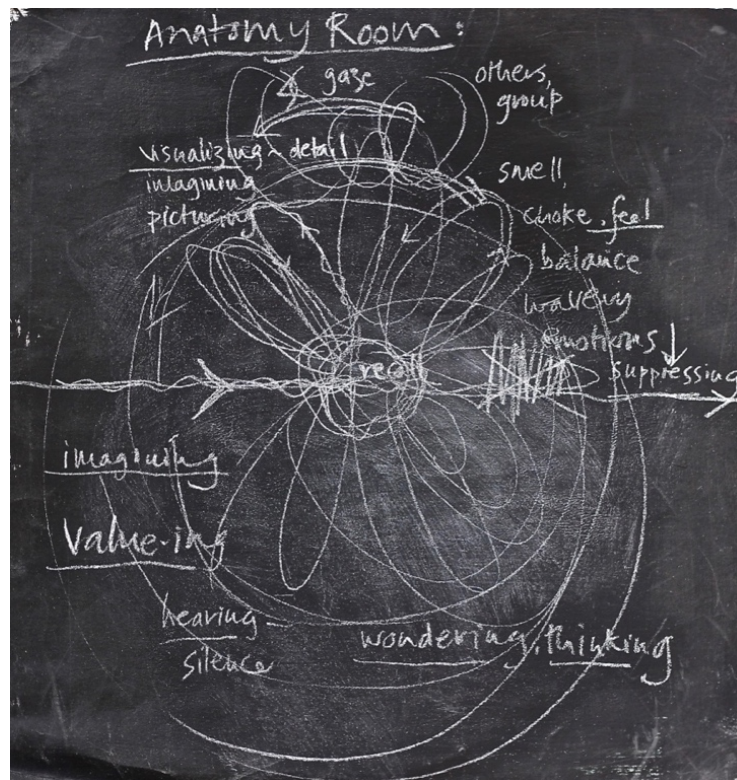 Anatomy Room:
gaze
others,
group
visualizing detail
imagining
picturing
smell,
choke, feel
balance
wavery
emotions
suppressing
recall
imagining
Value-ing
hearing
silence
wondering, thinking